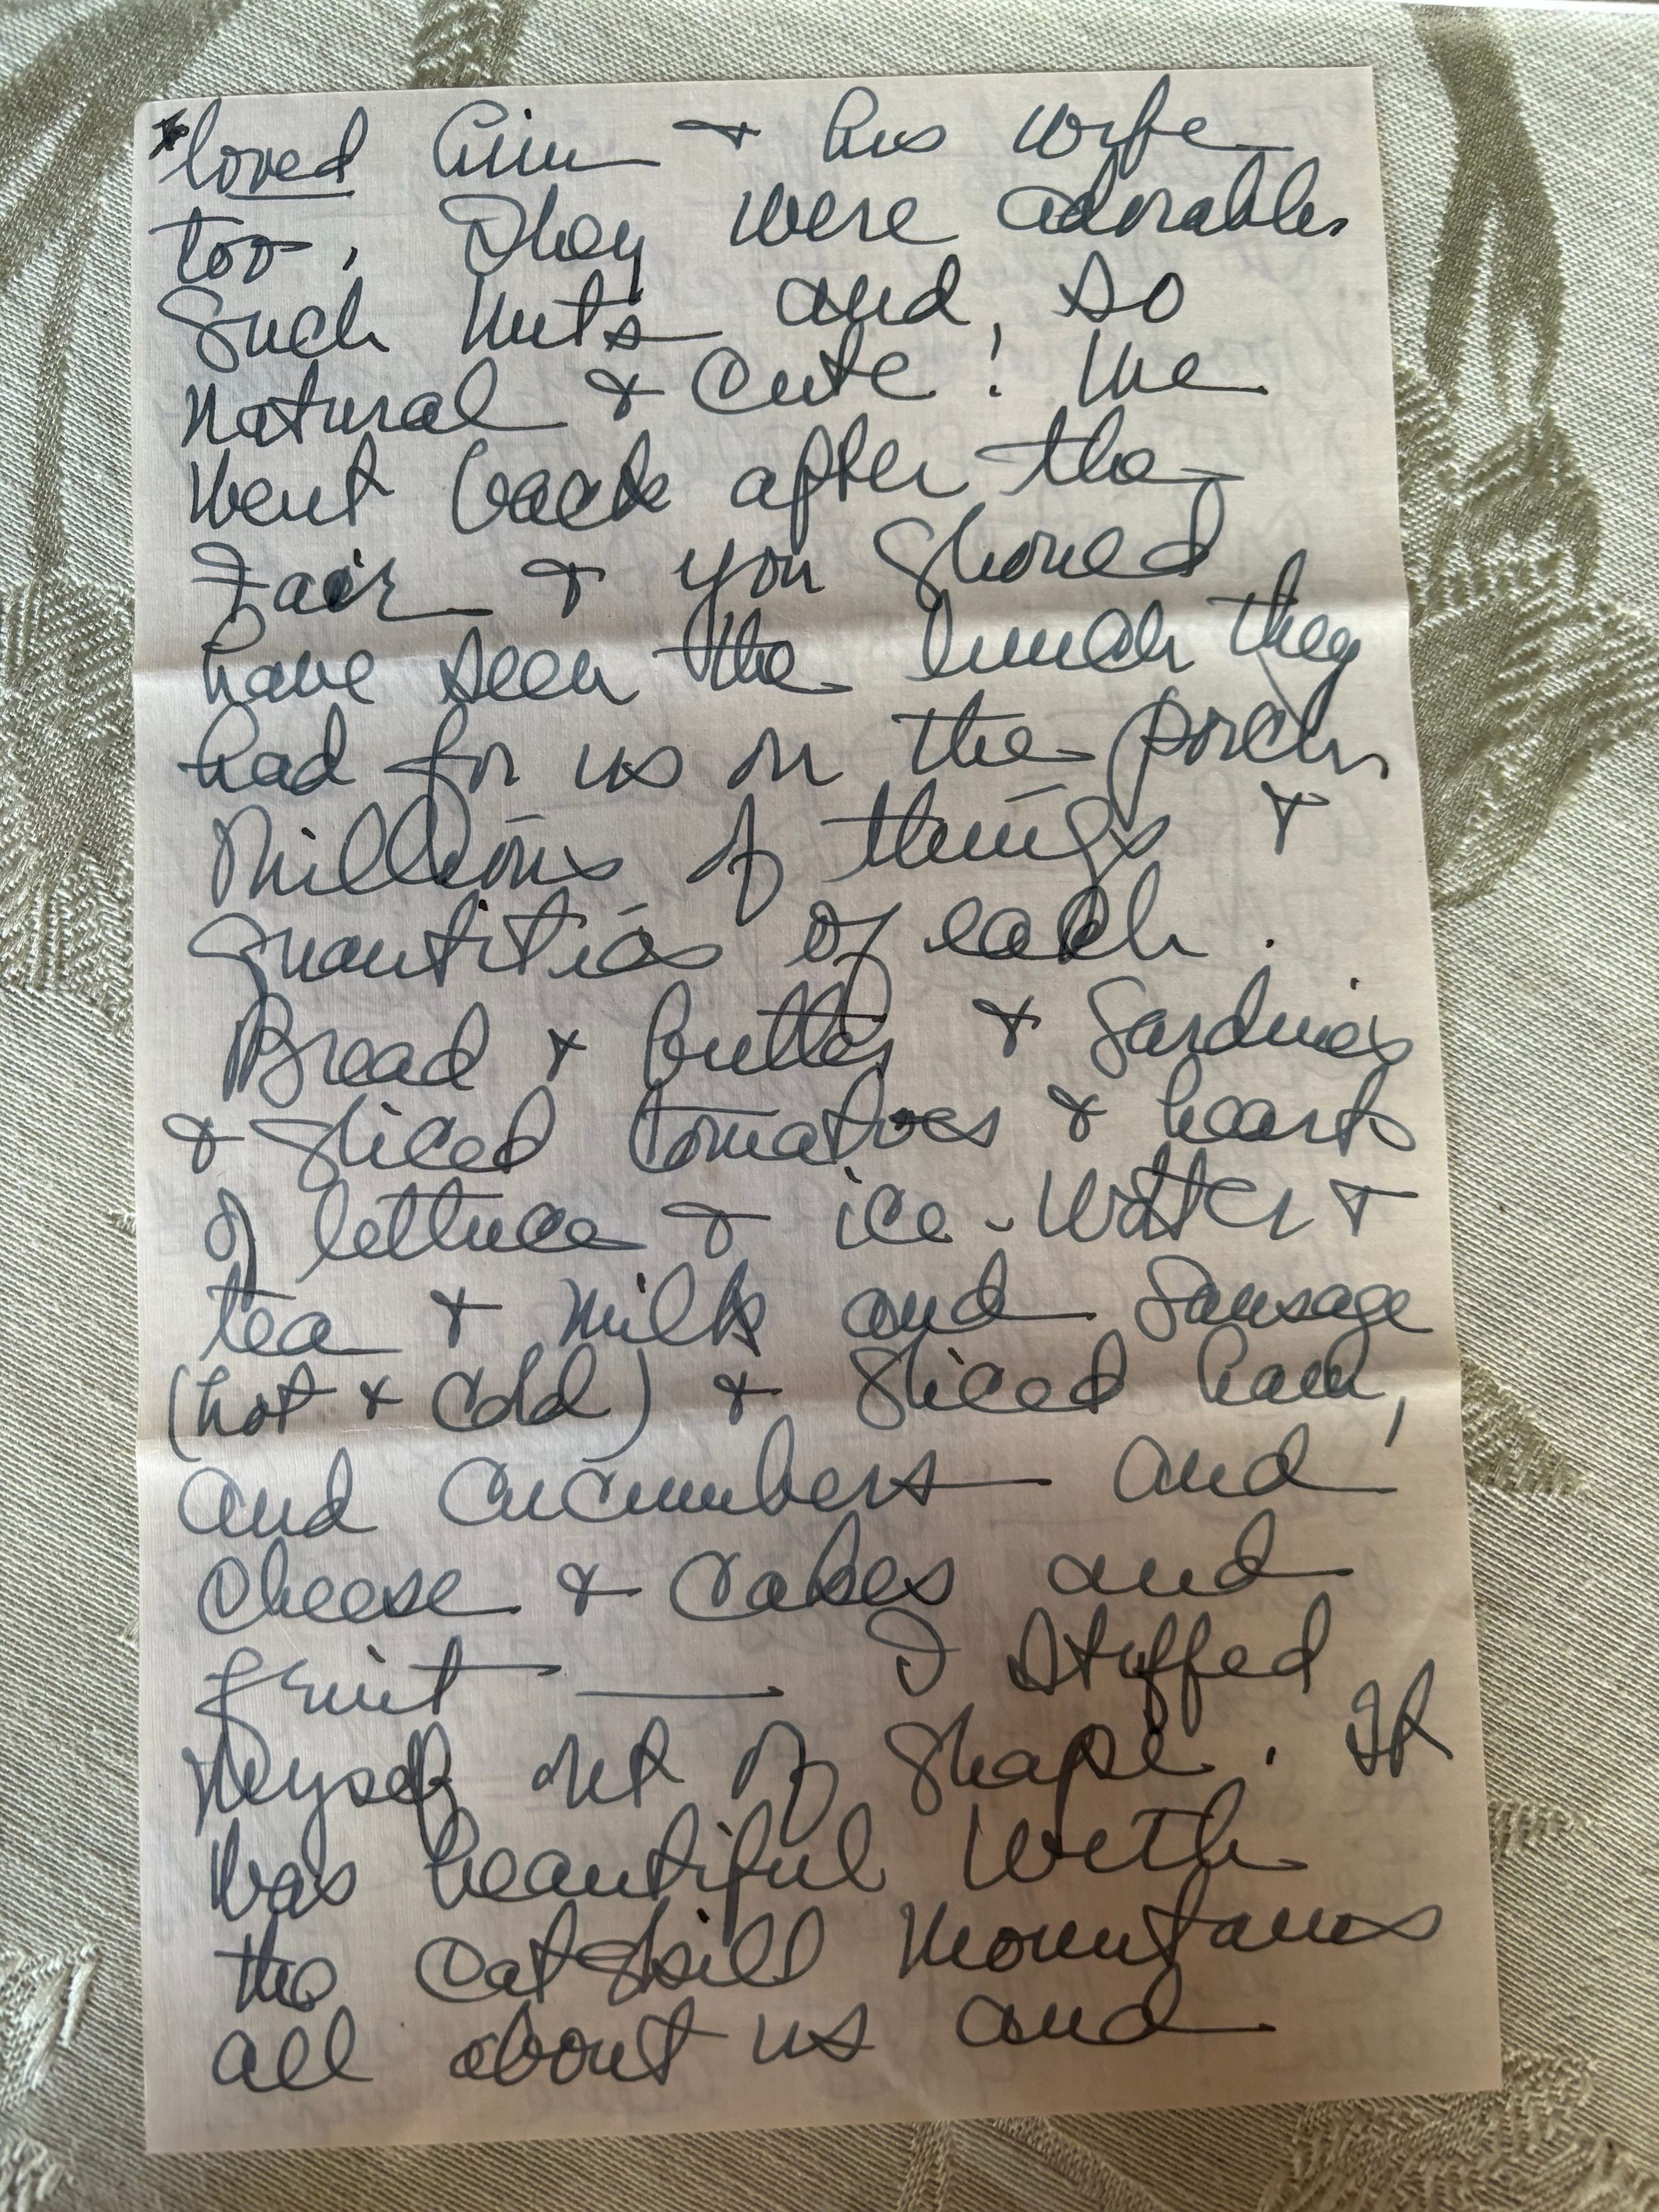 loved him & his wife
too. They were adorable
Such nuts and, so
natural & cute! We
went back after the
Fair & you should
have seen the lunch they
had for us on the porch,
Millions of things &
quantities of each.
Bread & butter & Sardines
& sliced tomatoes & hearts
of lettuce & ice-water &
tea & milk and Sausage
(hot & cold) & sliced ham,
and cucumbers and
cheese & cakes and
fruit — I stuffed
myself out of shape. It
was beautiful with
the Catskill Mountains
all about us and